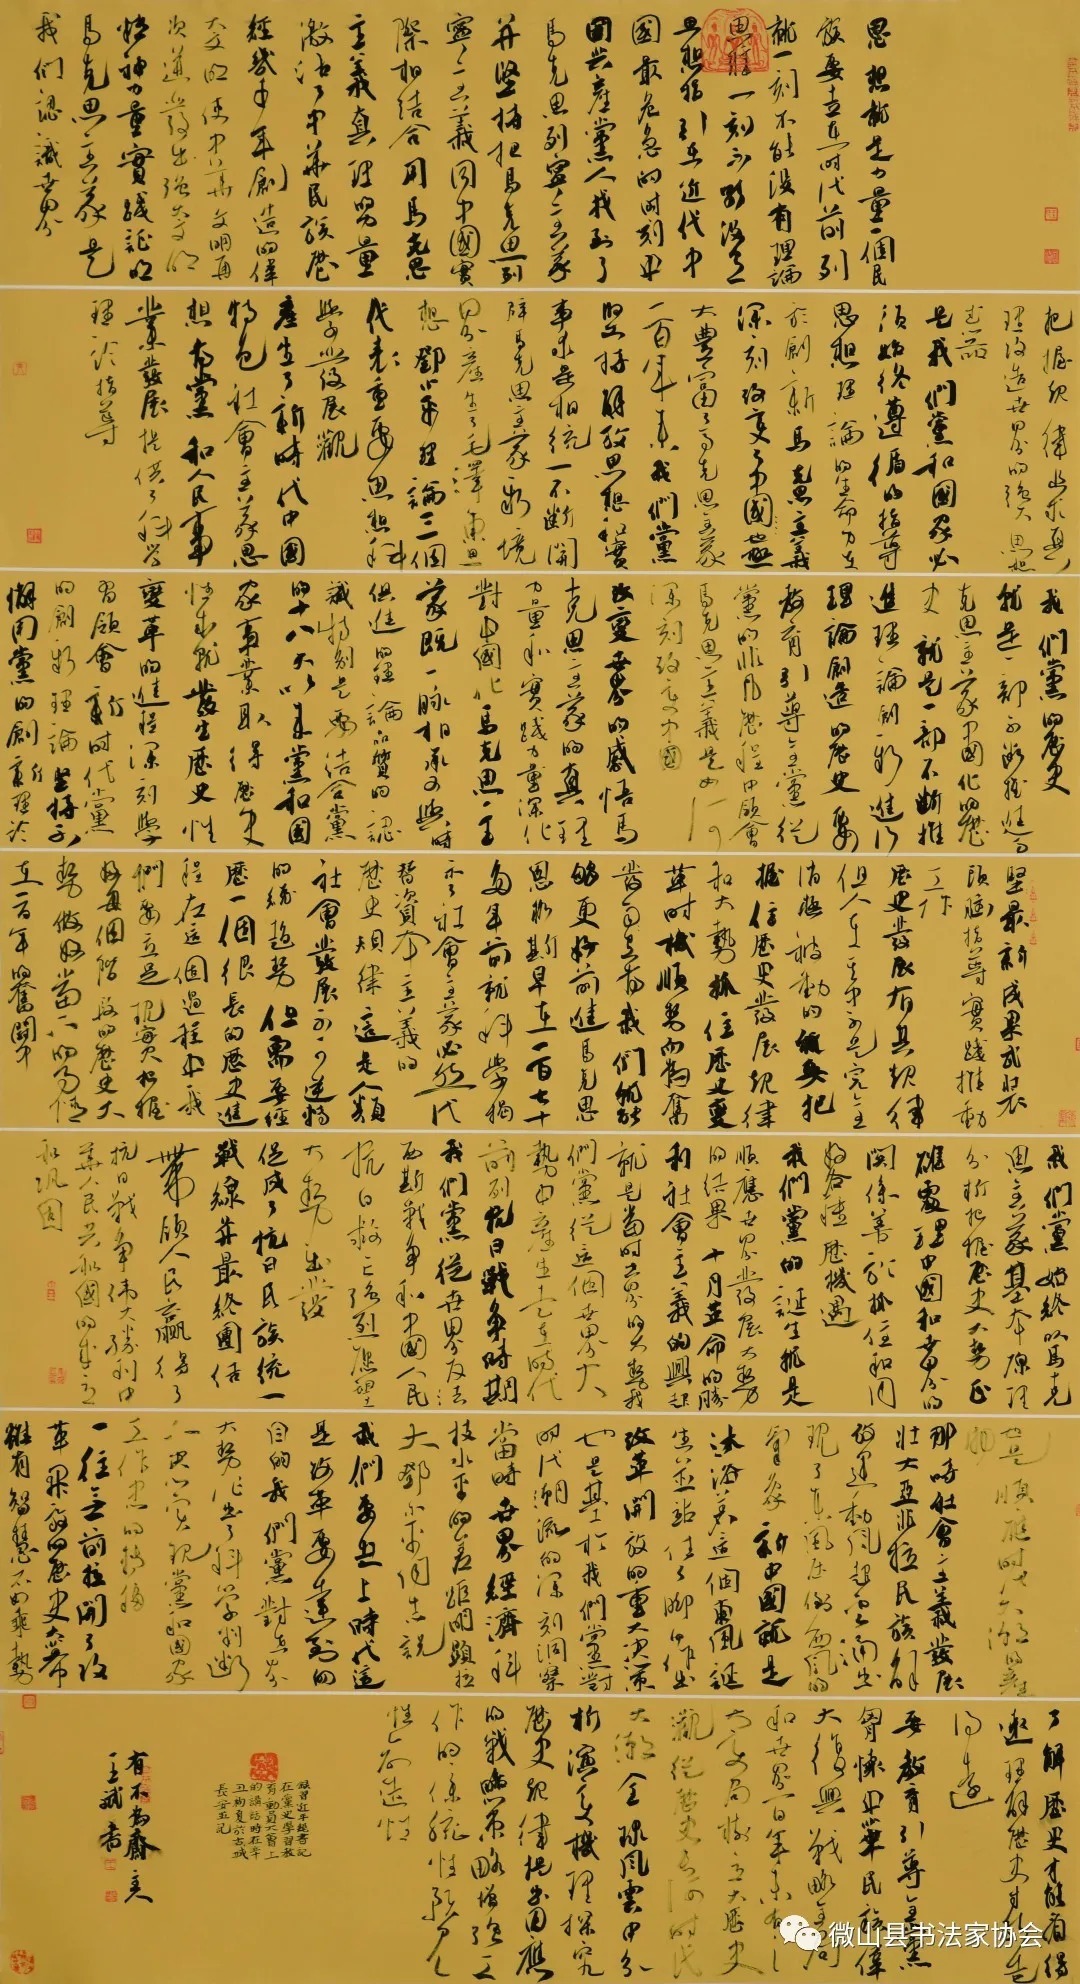 思想就是力量一個民
族要走在時代前列
就一刻不能沒有理論
思維一刻不能沒有
思想指引在近代中
國最危急的時刻中
國共產黨人找到了
馬克思列寧主義
并堅持把馬克思列
寧主義同中國實
際相結合用馬克思
主義真理力量
激活了中華民族歷
經幾千年創造的偉
大文明使中華文明再
次迸發出强大精
神力量實踐證明
馬克思主義是
我們認識世界
把握規律追求真
理改造世界的强大思想
武器
是我們黨和國家必
須始終遵循的指導
思想理論的生命力在
於創新馬克思主義
深刻改變了中國極
大豐富了馬克思主義
一百年來我們黨
堅持解放思想和實
事求是相統一不斷開
辟馬克思主義新境
界產生了毛澤東思
想鄧小平理論三個
代表重要思想科
學發展觀
產生了新時代中國
特色社會主義思
想為黨和人民事
業發展提供了科學
理論指導
我們黨的歷史
就是一部不斷推進馬
克思主義中國化的歷
史就是一部不斷推
進理論創新進行
理論創造的歷史要
教育引導全黨從
黨的非凡歷程中領會
馬克思主義是如何
深刻改變中國
改變世界的感悟馬
克思主義的真理
力量和實踐力量深化
對中國化馬克思主
義既一脉相承又與時
俱進的理論品質的認
識特别是要結合黨
的十八大以來黨和國
家事業取得歷史
性成就發生歷史性
變革的進程深刻學
習領會新時代黨
的創新理論堅持不
懈用黨的創新理論
最新成果武裝
頭腦指導實踐推動
工作
歷史發展有其規律
但人在其中不是完全
消極被動的只要把
握住歷史發展規律
和大勢抓住歷史變
革時機順勢而為奮
發有為我們就能
够更好前進馬克思
恩格斯早在一百七十
多年前就科學揭
示了社會主義必然代
替資本主義的
歷史規律這是人類
社會發展不可逆轉
的總趨勢但需要經
歷一個很長的歷史進
程在這個過程中我
們要立足現實把握
好每個階段的歷史大
勢做好當下的事情
在一百年的奮鬥中
我們黨始終以馬克
思主義基本原理
分析把握歷史大勢正
確處理中國和世界的
關係善於抓住和用
好各種歷史機遇
我們黨的誕生就是
順應世界發展大勢
的結果十月革命的勝
利社會主義的興起
就是當時世界的大勢我
們黨從這個世界大
勢中產生走在時代
前列抗日戰争時期
我們黨從世界反法
西斯戰争和中國人民
抗日救亡强烈願望
大勢出發
促成了抗日民族統一
戰線并最終團结
帶領人民贏得了
抗日戰争偉大勝利中
華人民共和國的成立
和鞏固
也是順應時代大潮的產
物
那時社會主義發展
壯大亞非拉民族解
放運動風起雲涌出
現了東風壓倒西風的
氣象新中國就是
沐浴著這個東風誕
生并站住了脚作出
改革開放的重大決策
也是基於我們黨對
時代潮流的深刻洞察
當時世界經濟科
技水平的差距明顯拉
大鄧小平同志說
我們要趕上時代這
是改革要達到的
目的我們黨對
大勢作出了科學判斷
決定實現黨和國家
工作中心的轉移
一往無前拉開了改
革開放的歷史大幕
雖有智慧不如乘勢
了解歷史才能看得
遠理解歷史才能走
得遠
要教育引導全黨
胸懷中華民族偉
大復興戰略全局
和世界百年未有之
大變局樹立大歷史
觀從歷史長河時代
大潮全球風雲中分
析演變機理探究
歷史規律提出因應
的戰略策略增强工
作的系統性預見
性創造性
錄習近平總書記
在黨史學習教
育動員大會上
的講話時在辛
丑初夏於古城
長安並記
有不為齋主人
王斌書
微山县书法家协会